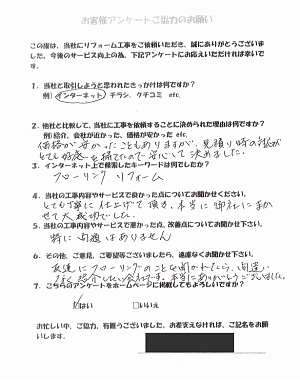 お客様アンケートご協力のお願い
この度は、当社にリフォーム工事をご依頼いただき、誠にありがとうございま
した、今後のサービス向上の為、下記アンケートにお応えいただければ幸いで
す。
1．当社と取引しようと思われたきっかけは何ですか？
例）インターネット チラシ、クチコミ etc.
2．他社と比較して、当社に工事を依頼することに決められた理由は何ですか？
例）紹介、会社が近かった、価格が安かった etc.
価格が安かったこともありますが、見積り時の対応が
とても好感を持てたので安心して決めました。
3．インターネット上で検索したキーワードは何でしたか？
フローリング リフォーム
4．当社の工事内容やサービスで良かった点についてお聞かせください。
とても丁寧に仕上げて頂き、本当に御社にまか
せて大成功でした。
5．当社の工事内容やサービスで悪かった点、改善点についてお聞かせ下さい。
特に問題はありません
6．その他、ご意見、ご要望等ございましたら、遠慮なくお聞かせ下さい。
友達にフローリングのことを聞かれたら、間違い
なく紹介したい会社です。本当にありがとうございました。
7．こちらのアンケートをホームページに掲載してもよろしいですか？
はい □いいえ
お忙しい中、ご協力、有難うございました、お差支えなければ、ご記名をお願
いします。